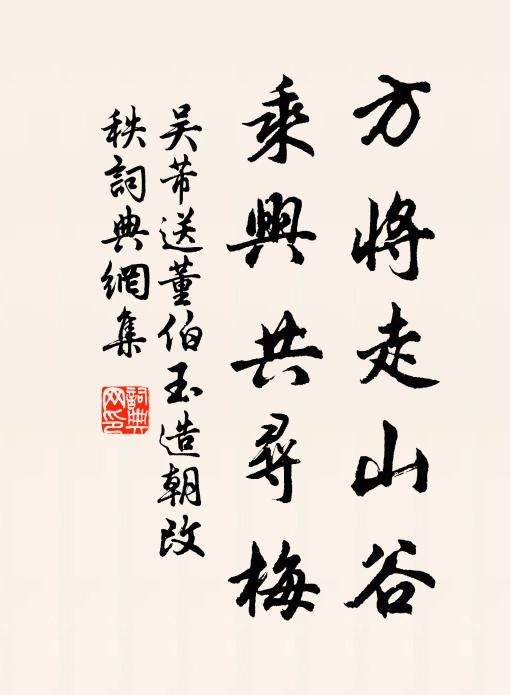 方将走山谷
乘興共尋梅
吴芾送董伯玉造朝改
秩詞典網集
詞典
网印